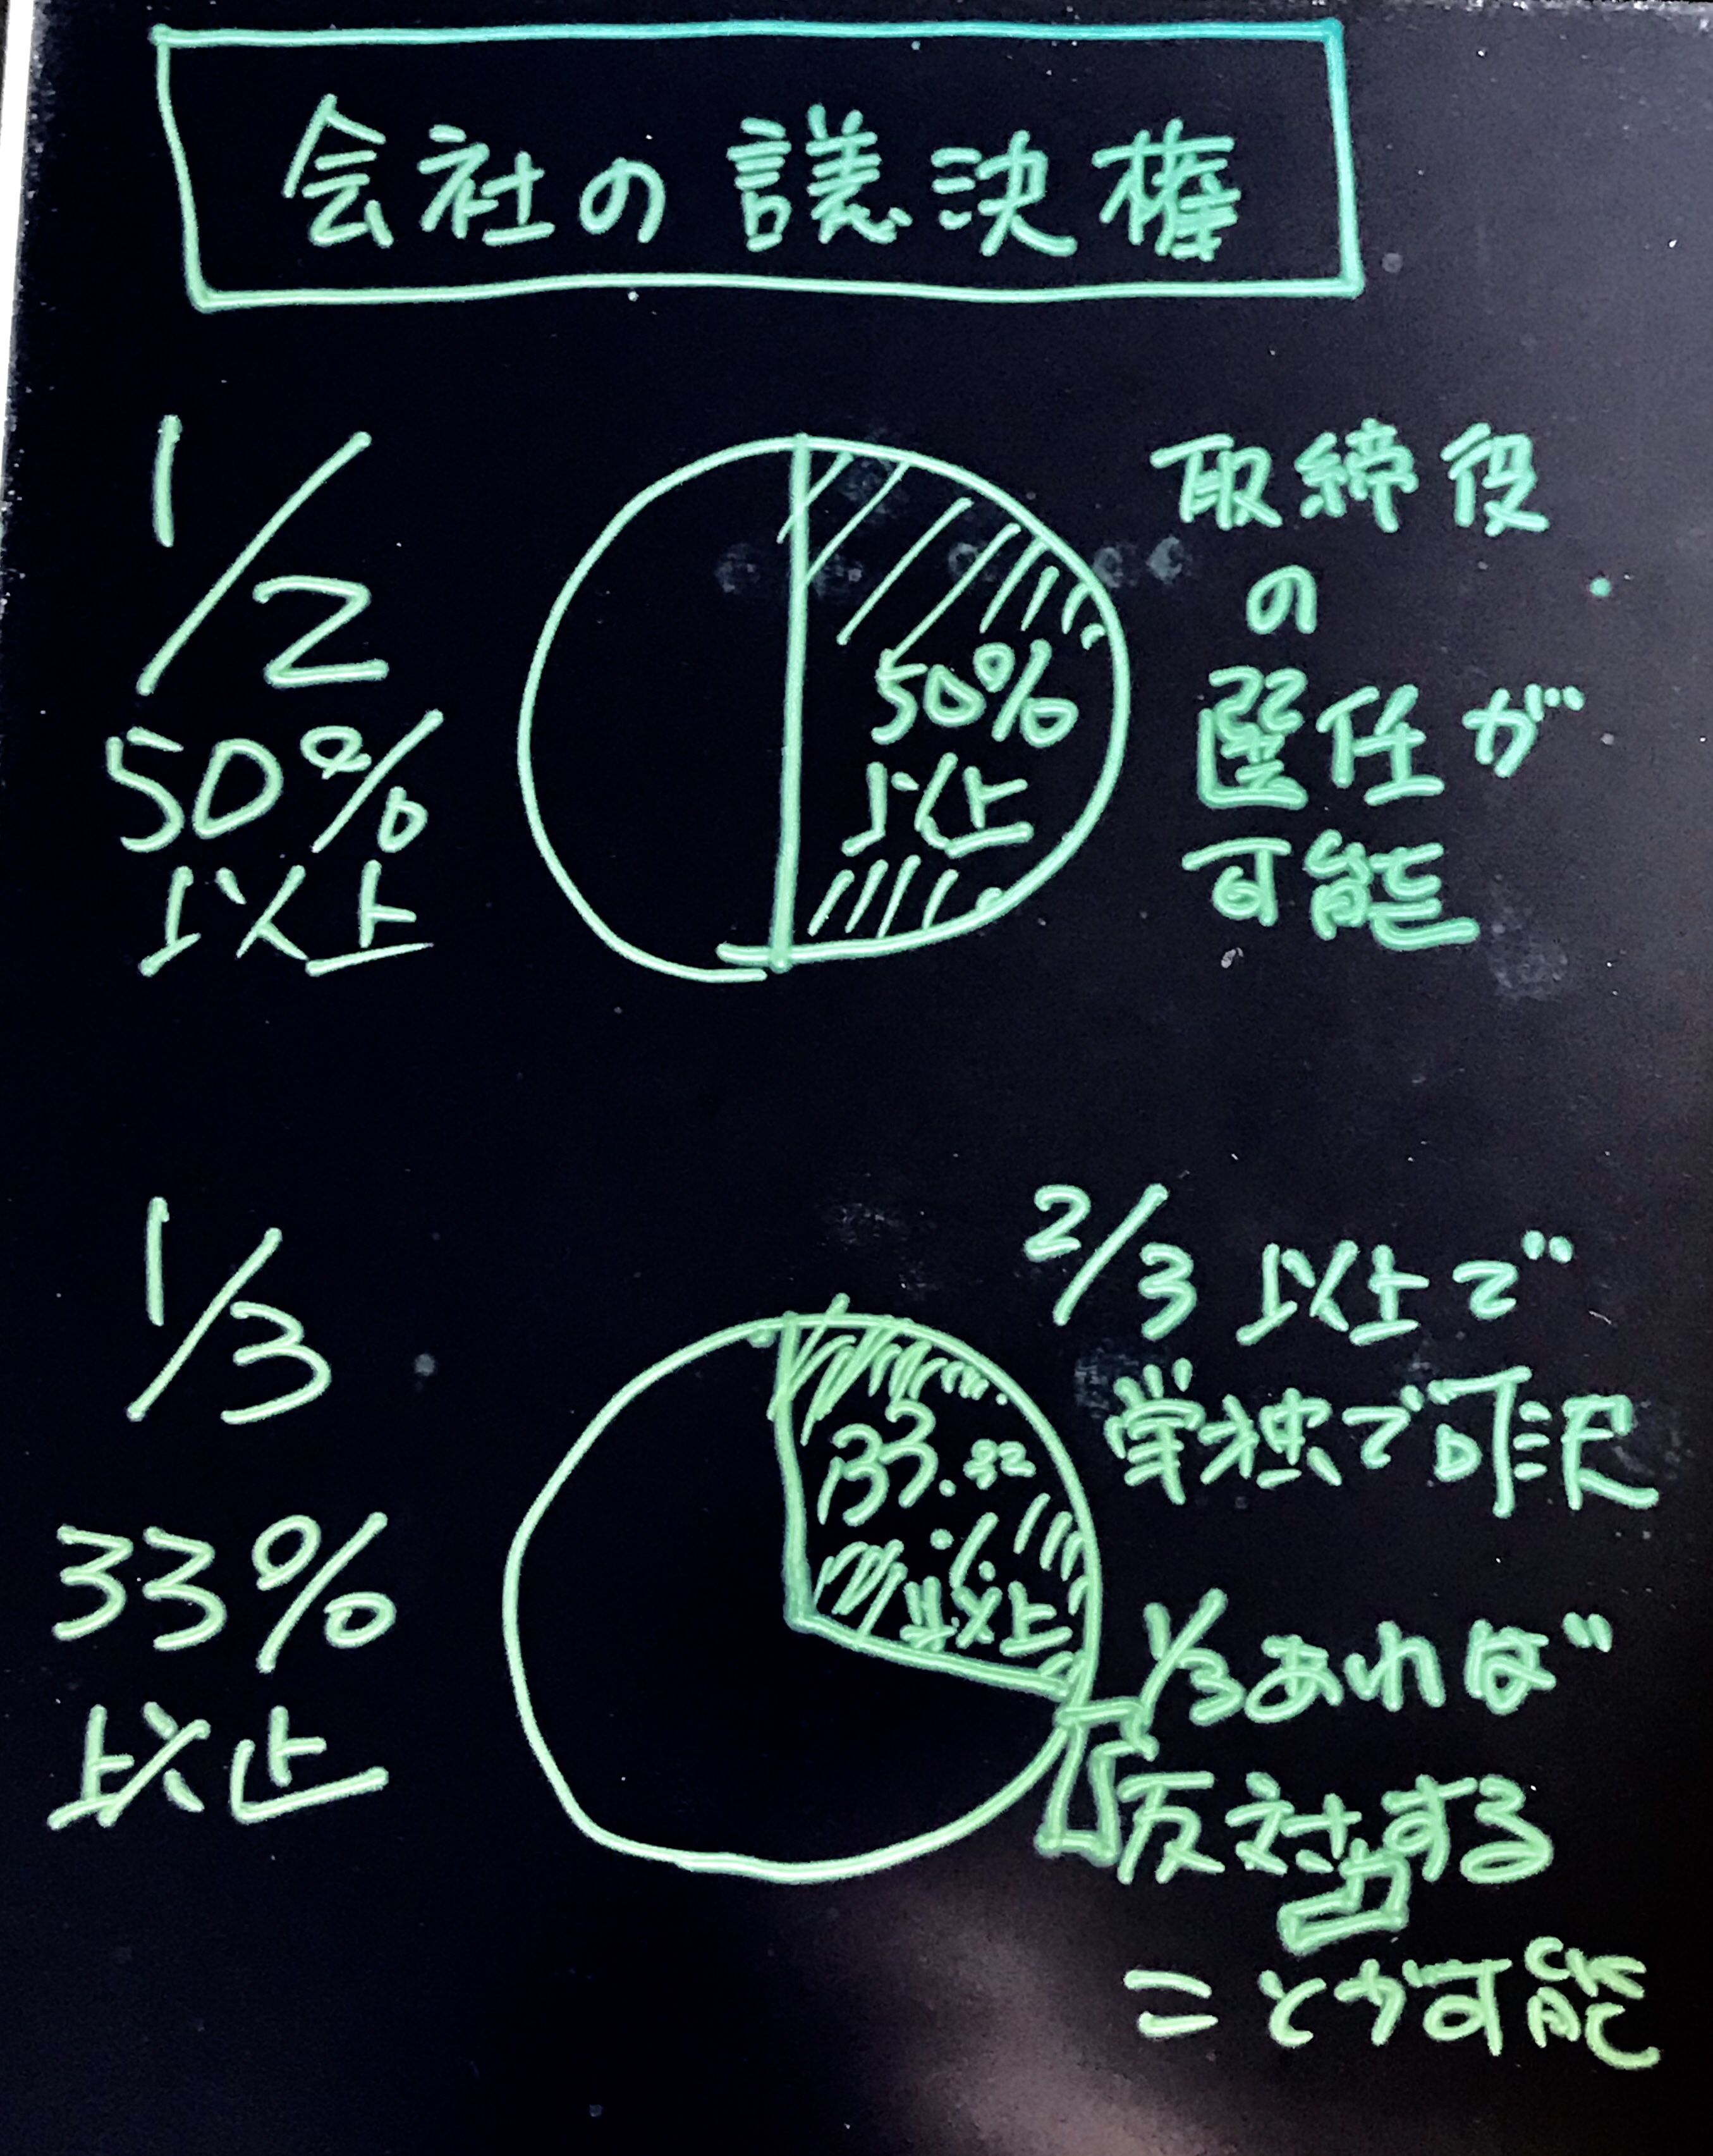 会社の議決権
1/2
50%
以上
50%
以上
取締役
の
選任が
可能
1/3
33%
以上
33.
%
以上
2/3 以上で
単独で可決
1/3あれば
反対する
ことが可能